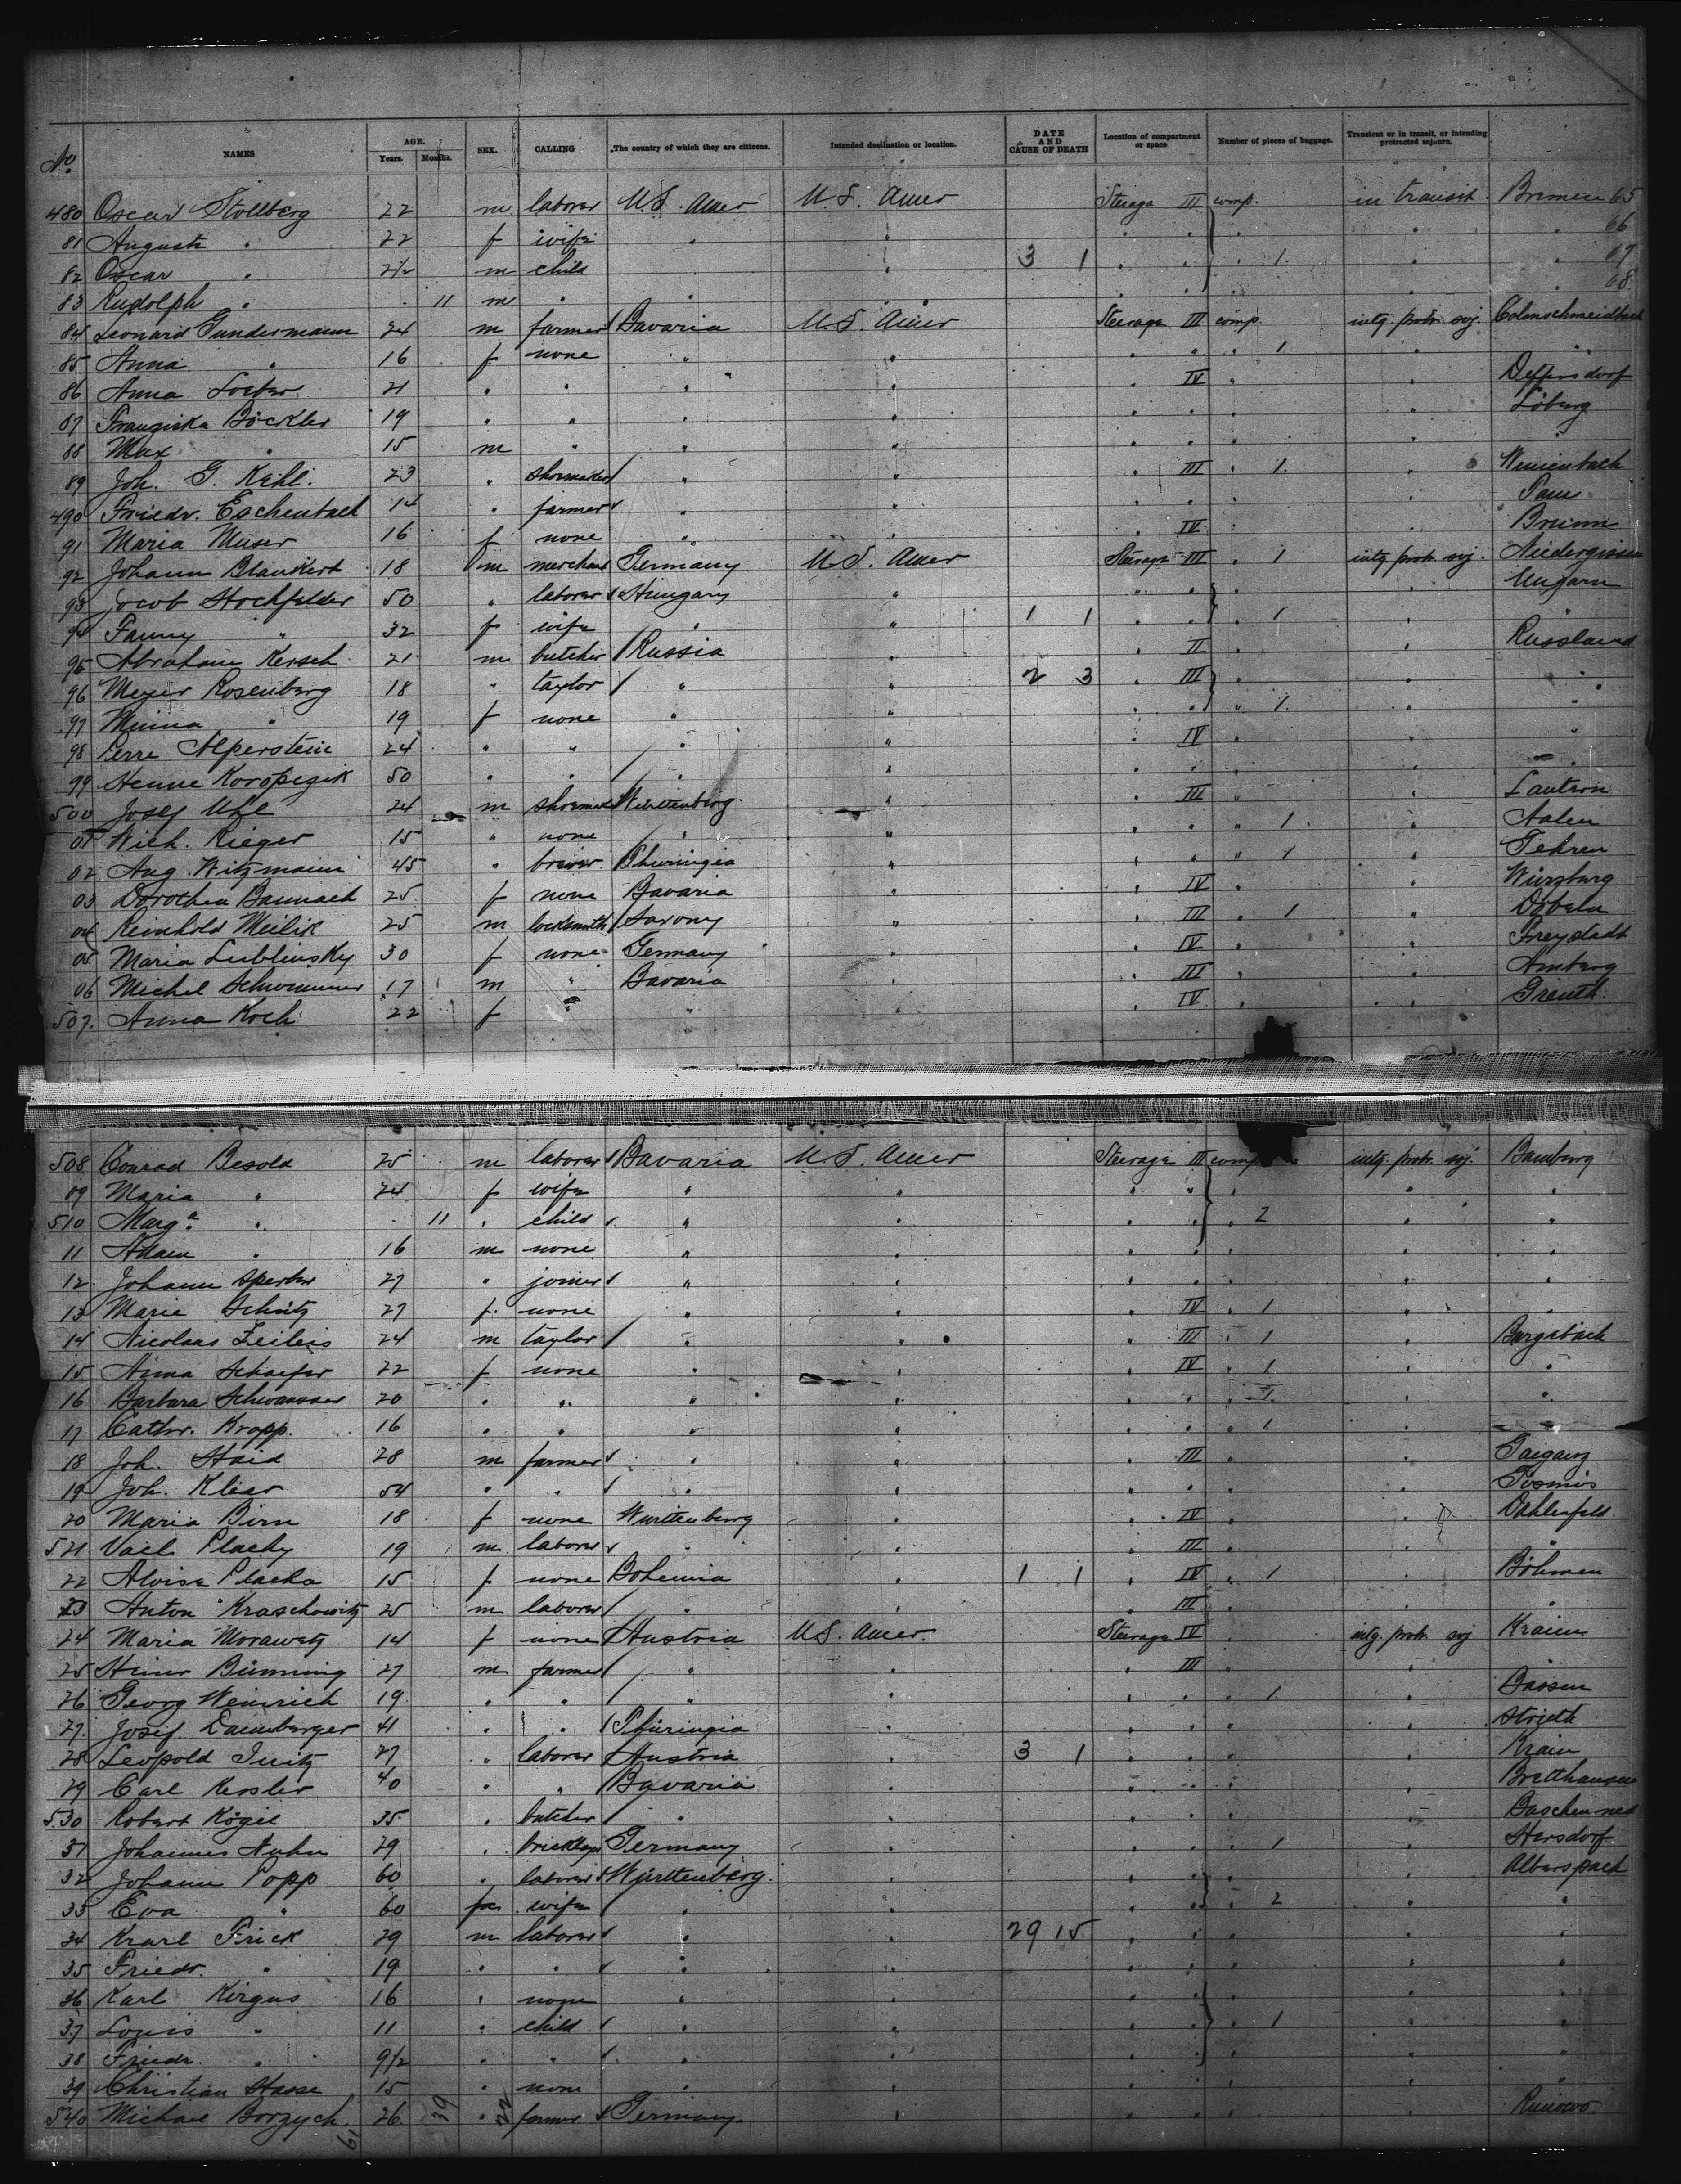 No. NAMES AGE. Years. Months. SEX. CALLING The country of which they are citizens. Intended destination or location. DATE AND CAUSE OF DEATH Location of compartment or space Number of pieces of baggage. Transient or in transit, or intending protracted sojourn.
480 Oscar Stollberg 22 m laborer U.S. Amer U.S. Amer Steerage III comp. in transit Bremen 65
81 Auguste " 22 f wife " " " " " " " 66
82 Oscar " 2 1/2 m child " 3 1 " " " 1 " " 67
83 Rudolph " 11 m " " " " " " " " 68
84 Leonard Gundermann 24 m farmer Bavaria U.S. Amer Steerage III comp. intg. protr. soj.
85 Anna " 16 f none " " " " " 1 " "
86 Anna 21 " " " " " IV " "
87 Franziska Böckler 19 " " " " " " " "
88 Max " 15 m " " " " " " "
89 Joh. G. Kehl. 23 " shoemaker " " " III " 1 "
490 Friedr. Eschenbach 14 " farmer " " " " " "
91 Maria Muser 16 f none " " " IV " " Brunn
92 Johann Blankert 18 m merchant Germany U.S. Amer Steerage III " 1 intg. protr. soj.
93 Jacob Stockfelder 50 " laborer Hungary " " " " " Ungarn
94 Fanny " 32 f wife " " 1 1 " " " 1 " "
95 Abraham Kersch 21 m butcher Russia " " II " " Russland
96 Meyer Rosenberg 18 " taylor " " 2 3 " III " " "
97 Minna " 19 f none " " " " " 1 " "
98 Alperstein 24 " " " " " IV " " "
99 Henne Koropczik 50 " " " " " " " " "
500 Josef Uhl 24 m shoemak Württenberg " " III " " Lautern
01 Wilh. Rieger 15 " none " " " " " 1 " Aalen
02 Aug. Witzmann 45 " brewer Thuringia " " " " 1 " Gehren
03 Dorothea Baunach 25 f none Bavaria " " IV " " Würzburg
04 Reinhold Meilik 25 m locksmith Saxony " " III " 1 " Döbeln
05 Maria Lublinsky 30 f none Germany " " IV " " Freystadt
06 Michel 17 m " Bavaria " " III " " Amberg
507. Anna Koch 22 f " " " " IV " " Greuth.
508 Conrad Besold 25 m laborer Bavaria U.S. Amer Steerage III comp intg. protr. soj. Bamberg
09 Maria " 24 f wife " " " " " " "
510 Marg.a " 11 " child " " " " " 2 " "
11 Adam " 16 m none " " " " " " "
12. Johann Sperber 27 " joiner " " " " " " "
13 Marie Schütz 27 f. none " " " IV " 1 " "
14 Nicolaus Zeileis 24 m taylor " " " III " 1 "
15 Anna Schaefer 22 f none " " " IV " 1 " "
16 Barbara Schwanser 20 " " " " " " " 1 " "
17 Cathr. Kropp. 16 " " " " " " " 1 " "
18 Joh. Staid 28 m farmer " " " III " " Gaiganz
19 Joh. Klier 54 " " " " " " " "
20 Maria Birn 18 f none Wurttenberg " " IV " " Dahlenfeld.
521 Vacl. Plachy 19 m laborer " " " III " " "
22 Aloisa Placha 15 f none Bohemia " 1 1 " IV " 1 " Böhmen
23 Anton Kraschowitz 25 m laborer " " " III " " "
24 Maria Morawetz 14 f none Austria U.S. Amer. Steerage IV intg. protr. soj Kraim
25 Heinr Bünning 27 m farmer " " " III " "
26 Georg Weinrich 19 " " " " " " " 1 " Bassen
27. Josef Daumberger 41 " " Thüringia " " " " " Strieth
28 Leopold 27 " laborer Austria " 3 1 " " " " Krain
29 Carl Kessler 40 " " Bavaria " " " " " Bretthausen
530 Robert Kögel 35 " butcher " " " " " "
31 Johannes Nuhn 29 " bricklayer Germany " " " " 1 " Hersdorf
32 Johann Popp 60 " laborer Württenberg. " " " " " Alberspach
33 Eva " 60 fm wife " " " " " 2 " "
34 Krarl Frick 29 m laborer " " 29 15 " " " " "
35 Friedr. " 19 " " " " " " " " "
36 Karl Kirgus 16 " none " " " " " " "
37 Louis " 11 " child " " " " " 1 " "
38 Friedr. " 9 1/2 " " " " " " " " "
39 Christian Haase 15 " none " " " " " " "
540 Michael Borzych. 26 " farmer Germany. " " " " " Runowo.
61 39 22